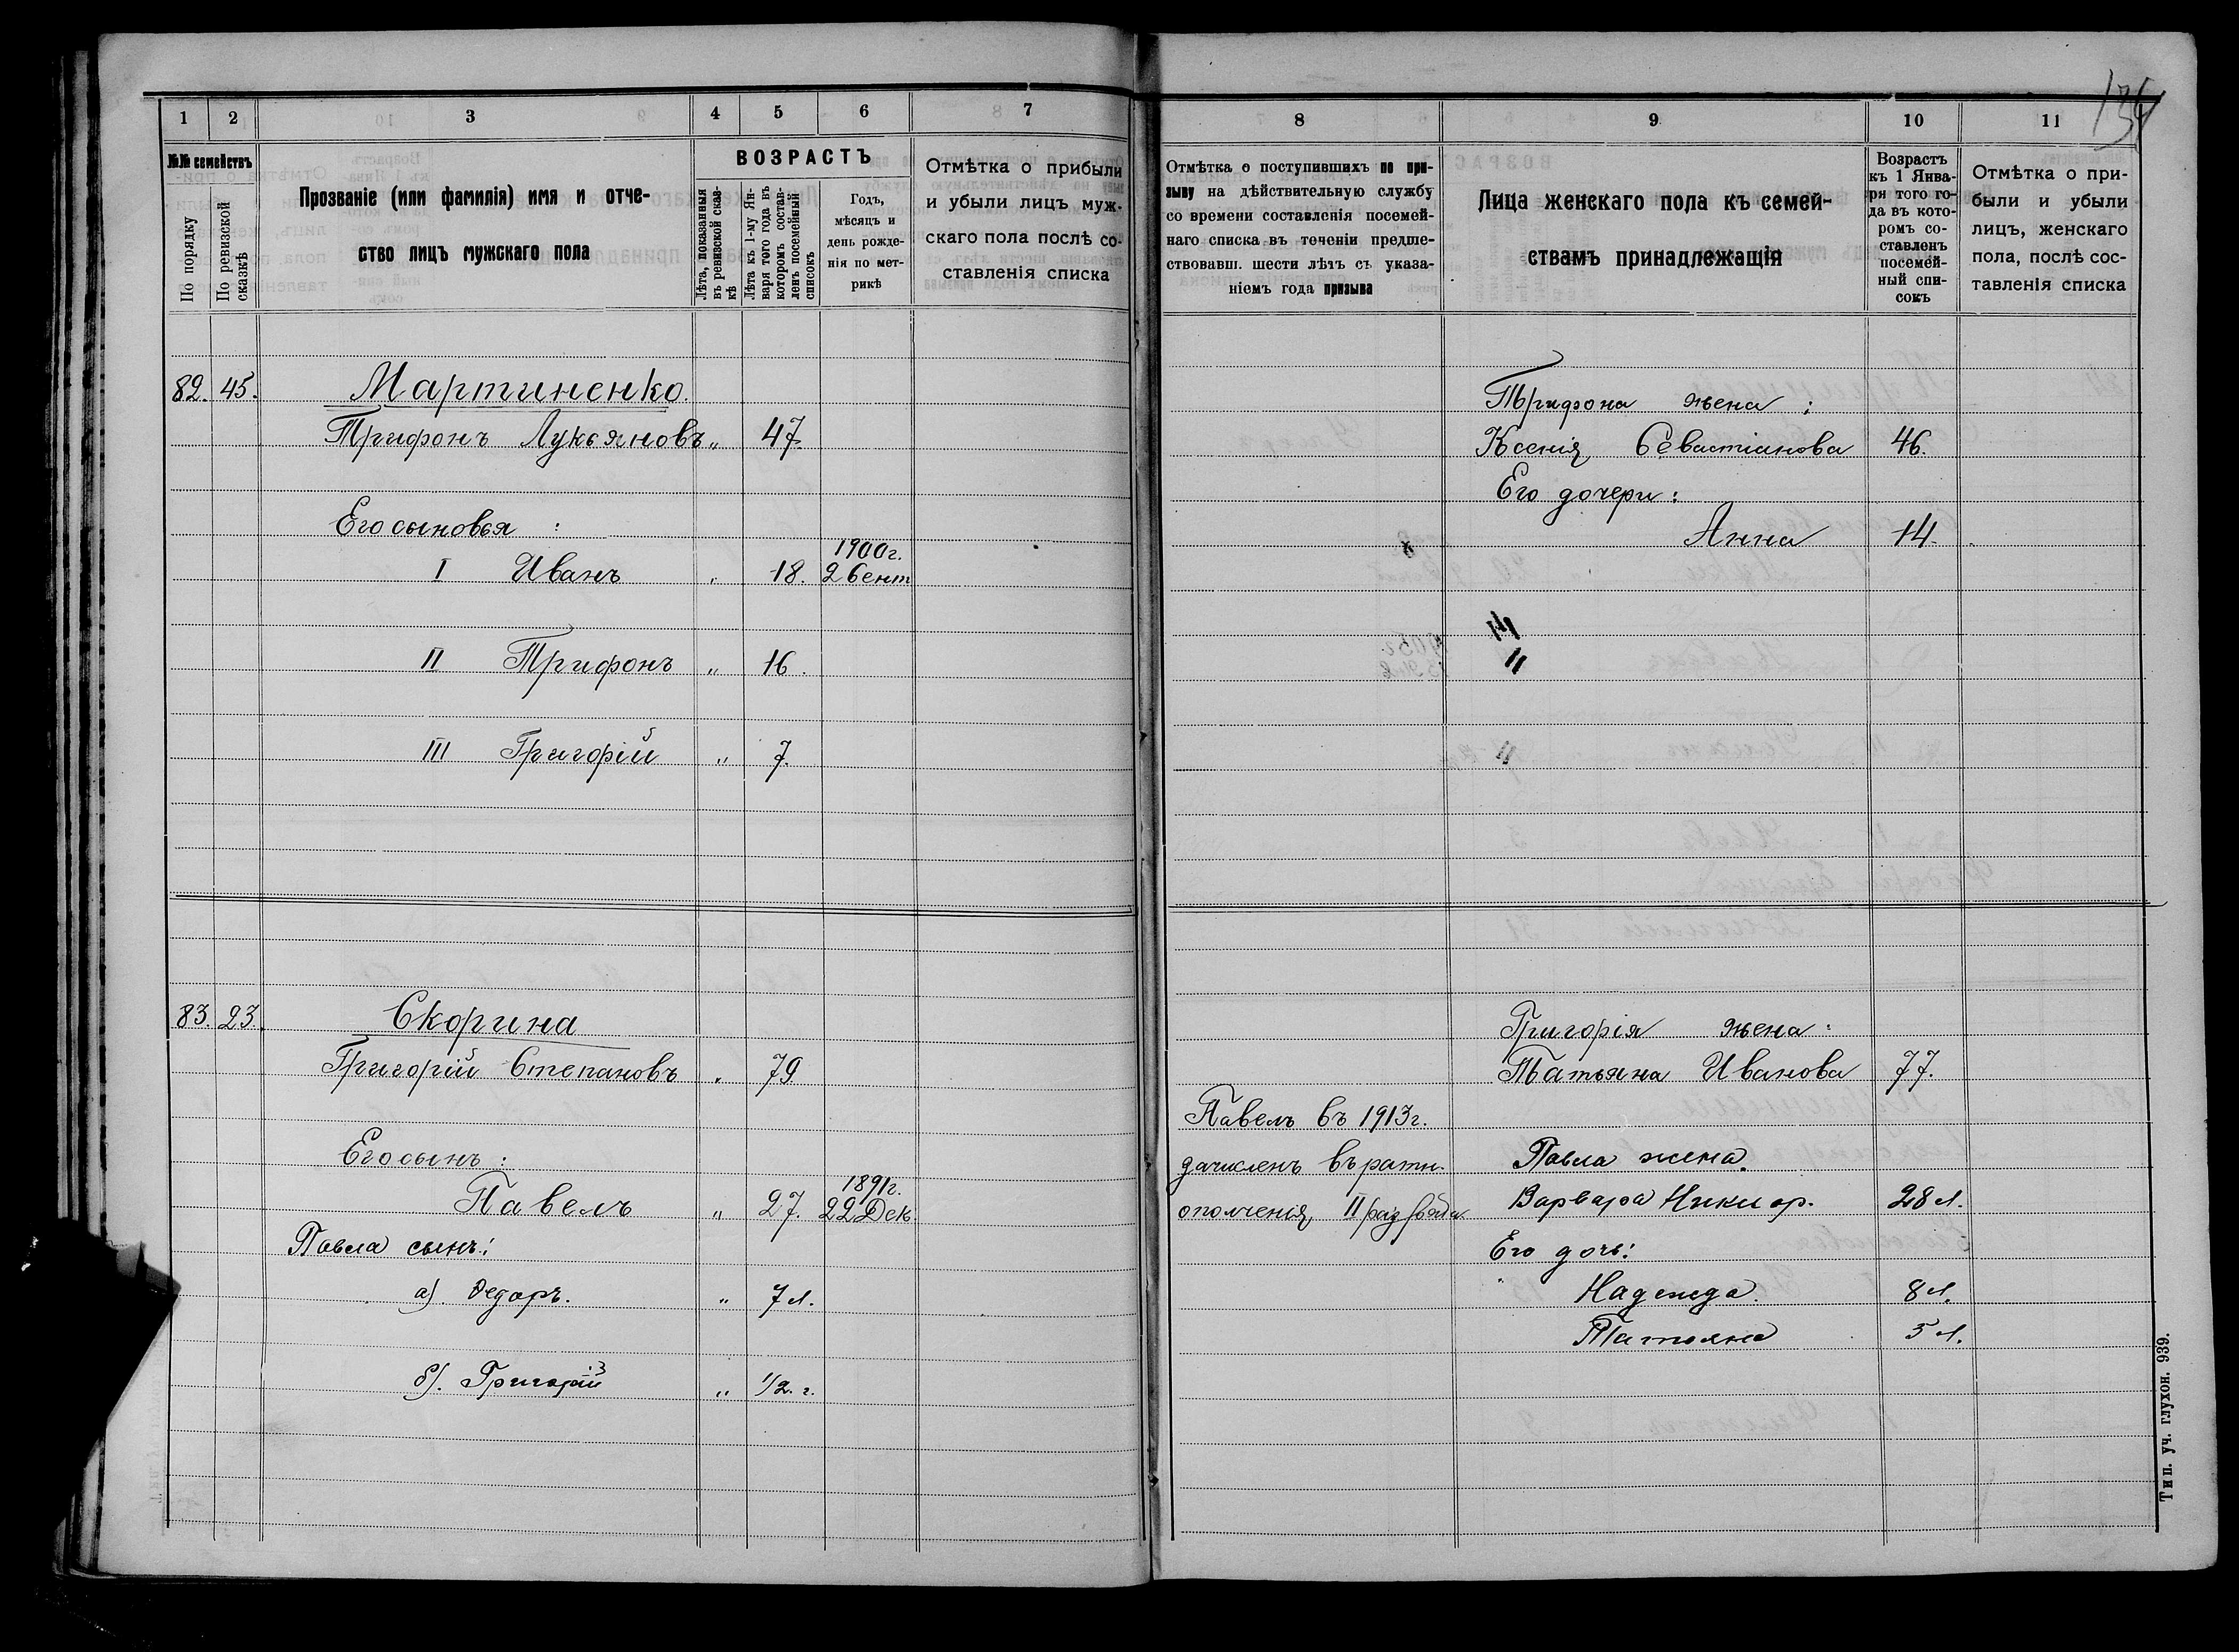 1 2 3 4 5 6 7
№№ семействъ
По порядку
По ревизской сказкѣ
Прозваніе (или фамилія) имя и отче-
ство лицъ мужскаго пола
ВОЗРАСТЪ
Лѣта, показанныя
въ ревизской сказ-
кѣ
Лѣта къ 1-му Ян-
варя того года въ
которомъ состав-
ленъ посемейный
списокъ
Годъ,
мѣсяцъ и
день рожде-
нія по мет-
рикѣ
Отмѣтка о прибыли
и убыли лицъ муж-
скаго пола послѣ со-
ставленія списка
82. 45. Мартиненко.
Трифонъ Лукьяновъ „ 47.
Его сыновья :
1900 г.
I Иванъ „ 18. 2 Сент
II Трифонъ „ 16.
III Григорій „ 7.
83. 23. Скорина
Григорій Степановъ „ 79
Его сынъ :
1891 г.
Павелъ „ 27. 22 Дек.
Павла сынъ:
а). Федоръ. „ 7 л.
б). Григорій „ 1/2. г.
8 9 10 11
134
Отмѣтка о поступившихъ по при-
зыву на дѣйствительную службу
со времени составленія посемей-
наго списка въ теченіи предше-
ствовавш. шести лѣтъ съ указа-
ніемъ года призыва
Лица женскаго пола къ семей-
ствамъ принадлежащія
Возрастъ
къ 1 Янва-
ря того го-
да въ кото-
ромъ со-
ставленъ
посемей-
ный спи-
сокъ
Отмѣтка о при-
были и убыли
лицъ, женскаго
пола, послѣ сос-
тавленія списка
Трифона жена :
Ксенія Севастіанова 46.
Его дочери :
Анна 14.
Григорія жена :
Татьяна Иванова 77.
Павелъ въ 1913 г.
зачисленъ въ ратн. Павла жена.
ополченія II разряда Варвара Никиф. 28 л.
Его дочь:
„ Надежда. 8 л.
Татьяна 5 л.
Тип. уч. глухон. 939.